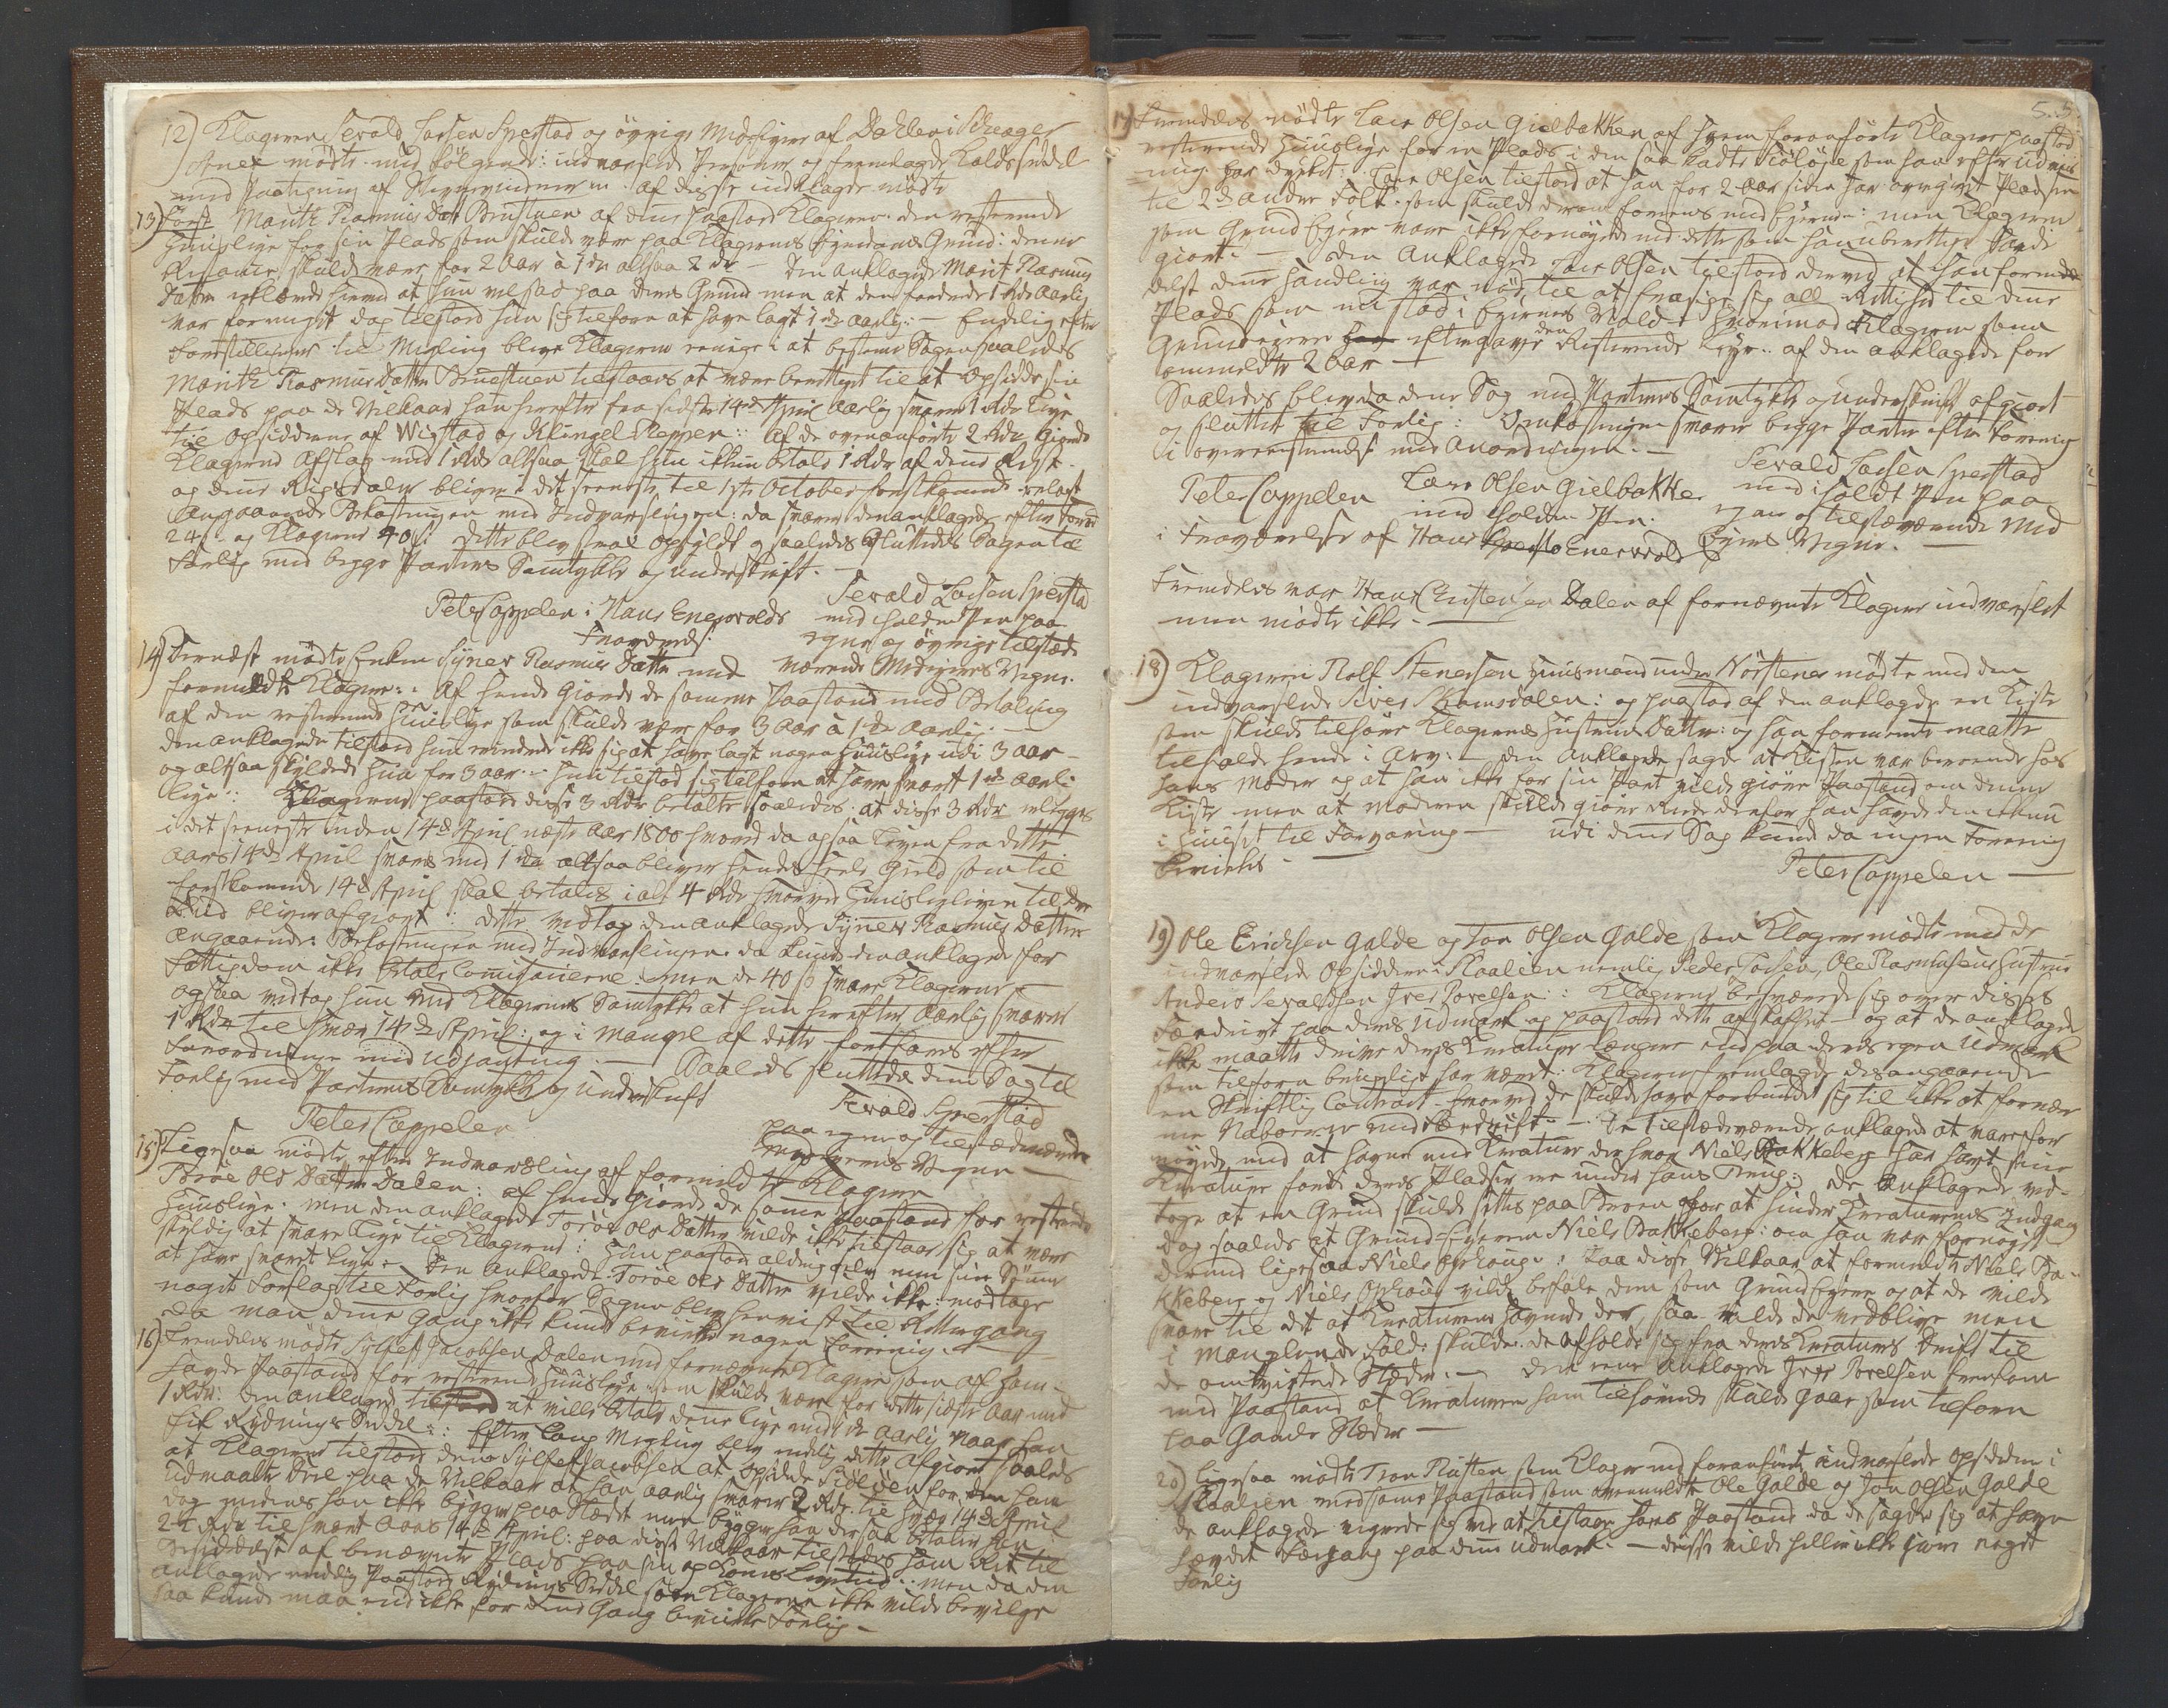 12) Klageren Sevald Joesen Sperstad og övrige Medeiyere af Dahlen i
mødte med følgende indvarslede Personer og fremlagde Kaldsseddel
med Paategning af Stevnevidnerne. af disse indklagede mødte
13) först Marith Rasmus Datter Bruestuen af denne paastoed Klagerne den resterende
Huusleye for sin Plads som skulde være paa Klagernes Eyendoms Grund: denne
Restance skulde være for 2 Aar à 1 rdr altsaa 2 rdr – Den anklagede Marit Rasmus
Datter erklærede herved at hun vel sad paa deres Grund men at den fordrede 1 Rdr Aarlig
var for meget dog tilstoed hun sig tilforn at have lagt 1 rdr aarlig: – Endelig efter
Forestillinger til Megling blev Klagerne eenige i at bestemme Sagen saaledes
Marith Rasmus Datter Bruestuen tilstaaes at være berettiget til at Opsidde sin
Plads paa de Vilkaar hun herefter fra sidste 14de April Aarlig svarer 1 Rdr Leye
til Opsidderne af Wigstad og Klingel Repper: Af de ovenanførte 2 Rdr giorde
Klagerne Afslag med 1 Rdr altsaa skal hun ikkun betale 1 Rdr af denne Rest.
og denne Rigsdaler bliver i det seeneste til 1ste October førstkommende erlagt
Angaaende Bekostningen med Indvarslingen: da svarer den anklagede efter
24 s. og Klagerne 40 s: dette blev strax opfyldt og saaledes sluttedes Sagen til
Forlig med begge Parters Samtykke og underskrift. –
Peter Cappelen i Hans Enevolds
Fraværelse:
Sevald Joesen Spersta
med holden Pen paa
egne og övrige tilstæde
værende Medeyeres Vegne.
14) Dernæst mødte Enken Syner Rasmus Datter med
formeldte Klagere: Af hende giorde de samme Paastand med Betaling
af den resterende Huusleye som skulde være for 3 Aar à 1 rdr Aarlig. –
den anklagede tilstoed hun erindrede ikke sig at have lagt nogen Huusleye udi 3 aar –
og altsaa skyldede hun for 3 aar. – hun tilstod sig tilforn at have svaret 1 rdr aarli
leye: Klagerne paastode disse 3 Rdr betalte saaledes: at disse 3 Rdr erlegges
i det seeneste inden 14de April næste Aar 1800 hvormed da ogsaa Leyen fra dette
Aars 14de April svares med 1 rdr altsaa bliver hendes heele Gield som til
førstkommende 14de April skal betales i alt 4 Rdr hvorved Huusleien til den
Tiid bliver afgiort: dette vedtog den anklagede Syner Rasmus Datter
angaaende: Bekostningen med Indvarslingen da kunde den anklagede for
Fattigdom ikke betale Comissairerne: men de 40 s svare Klagerne –
ogsaa vedtog hun med Klagernes Samtykke at hun herefter aarlig svarer
1 Rdr til hver 14de April: og i mangel af dette forfares efter
Forordninge med Udsætning. – Saaledes sluttedes denne Sag til
Forlig med Parternes Samtykke og Underskrift
Peter Cappelen
Sevald Sperstad
paa egne og tilstædeværende
Medeyeres Vegne –
15) Ligesaa mødte efter Indvarsling af formeldte Klagere
Toröe Ols Datter Dalen: af hende giorde de samme Paastand for resterende
Huusleye. men den anklagede Toröe Ols Datter vilde ikke tilstaae sig at være
skyldig at svare Leye til Klagerne: hun paastod aldrig
at have svaret Leye. – Den anklagede Toröe Ols Datter vilde ikke modtage
noget Forslag til Forlig hvorfor Sagen blev henvist til Rettergang
da man denne Gang ikke kunde bevirke nogen Forening. –
16) Fremdeles mødte Sylfest Jacobsen Dalen med fornævnte Klagere som af ham
havde Paastand for resterende Huusleye som skulde være for dette sidste Aar med
1 Rdr: den anklagede tilstoed at ville betale denne leye med 1 rdr aarlig naar han
fik Rydnings Seddel: Efter lang Megling blev endelig dette afgiort saaledes
at Klagerne tilstod denne Sylfest Jacobsen at Opsidde for ham
udmaalte Deel paa de Vilkaar at han aarlig svarer 2 Rdr til hver 14de April
dog medens han ikke bygger paa Stedet men bygger han der saa betaler han
2½ Rdr til hvert Aars 14de April: paa disse Vilkaar tilstædes ham Ret til
Besiddelse af benævnte Plads paa sin og Kones Livstiid: men da den
anklagede endelig paastod Rydnings Seddel som Klagerne ikke vilde bevilge
saa kunde man end ikke for denne Gang bevirke Forlig –
5. 5.
17) Fremdeles mødte Lars Olsen Gielbakken af hvem foranførte Klagere paastod
resterende Huusleye for en Plads i den saa kaldte som han efter Udvis
ning har dyrket: Lars Olsen tilstoed at han for 2 Aar siden har overgivet Pladsen
til 2de andre Folk. som skulde derom forenes med Eyerne: men Klagerne
som Grundeyere vare ikke fornøyede med dette som han uberettiget havde
giort. – den Anklagede Lars Olsen tilstoed derved at han formedelst
denne Handling var nød til at frasige sig all Rettighed til denne
Plads som nu stod i Eyernes Vold – hvorimod Klagerne som
Grundeiere eftergave den Resterende Leye af den anklagede for
ommeldte 2 Aar –
Saaledes blev da denne Sag med Parternes Samtykke og underskrift afgiort
og sluttet til Forlig: Omkostningen svarer begge Parter efter Forening
i overeenstemmelse med Anordningen. –
Peter Cappelen
i Fraværelse af Hans Enevolds
Lars Olsen Gielbakke
med holden Pen.
Sevald Joesen Sperstad
med iholdt Pen paa
egne og tilstæværende Med
Eyeres Vegne.
Fremdeles var Hans Christensen Dalen af fornævnte Klagere indvarslet
men mødte ikke –
18) Klageren Rolf Stenersen Huusmand under Nörstenes mødte med den
indvarslede Siver Skamsdalen: og paastod af den anklagede en Kiste
som skulde tilhøre Klagerens Hustrues Datter: og han formeente maatte
tilfalde hende i Arv. – den Anklagede sagde at Kisten var beroende hos
hans Moder og at han ikke for sin Part vilde giøre Paastand om denne
Kiste men at Moderen skulde giøre Rede derfor han havde den endnu
i Huuset til Forvaring – udi denne Sag kunde da ingen Forening
bevirkes –
Peter Cappelen –
19) Ole Erichsen Galde og Jon Olsen Galde som Klagere mødte med de
indvarslede Opsiddere i Skaalien nemlig Peder Joesen, Ole Rasmusens Hustrue
Anders Sevaldsen Iver Povelsen: Klagerne besværede sig over disses
Fædrivt paa deres Udmark og paastod dette afskaffet – og at de anklagede
ikke maatte drive deres Kreature længere end paa deres egen Udmark
som tilforn brugeligt har været: Klagerne fremlagde desangaaende
en Skriftlig Contract – hvorved de skulde have forbundet sig til ikke at fornær
me Naboerne med Fædrift. – De tilstædeværende anklagede at være for
nøyede med at havne med Kreature der hvor Niels Bakkeberg har havt sine
Kreature fordi deres Pladser ere under hans Brug: de Anklagede ved-
toge at en Grind skulde settes paa Broen for at hindre Kreaturenes Indgang
dog saaledes at Grund-Eyeren Niels Bakkeberg: om han var fornøyet
dermed ligesaa Niels Ophouge: Paa disse Vilkaar at formeldte Niels Ba-
kkeberg og Niels Ophoug vilde befale dem som Grundeyere og at de vilde
svare til det at Kreaturene havnede der, saa vilde de vedblive men
i manglende Fald: skulde de afholde sig fra deres Kreaturs Drift til
de omtvistede Stæder. – Den eene Anklagede Iver Povelsen fremkom
med Paastand at Kreaturene ham tilhørende skulde gaae som tilforn
paa Gamle Stæder –
20) Ligesaa mødte Tron Rusten som Klager med foranførte indvarslede Opsiddere i
Skaalien med samme Paastand som ovenmeldte Ole Galde og Jon Olsen Galde
de anklagede vegrede sig ved at tilstaae hans Paastand da de sagde sig at have
hævdet Fægang paa denne Udmark. – disse vilde heller ikke indgaae noget
Forlig